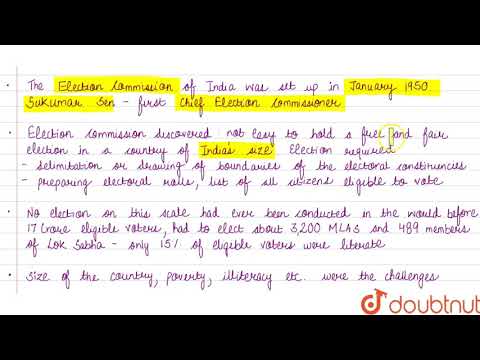 · The Election Commission of India was set up in January 1950.
Sukumar Sen - first Chief Election Commissioner
· Election Commission discovered not easy to hold a free and fair
election in a country of India's size Election required
- delimitation or drawing of boundaries of the electoral constituencies
- preparing electoral rolls, list of all citizens eligible to vote
· No election on this scale had ever been conducted in the world before
17 Crore eligible voters, had to elect about 3,200 MLAs and 489 members
of Lok Sabha - only 15% of eligible voters were literate
· Size of the country, poverty, illiteracy etc. were the challenges
doubtnut